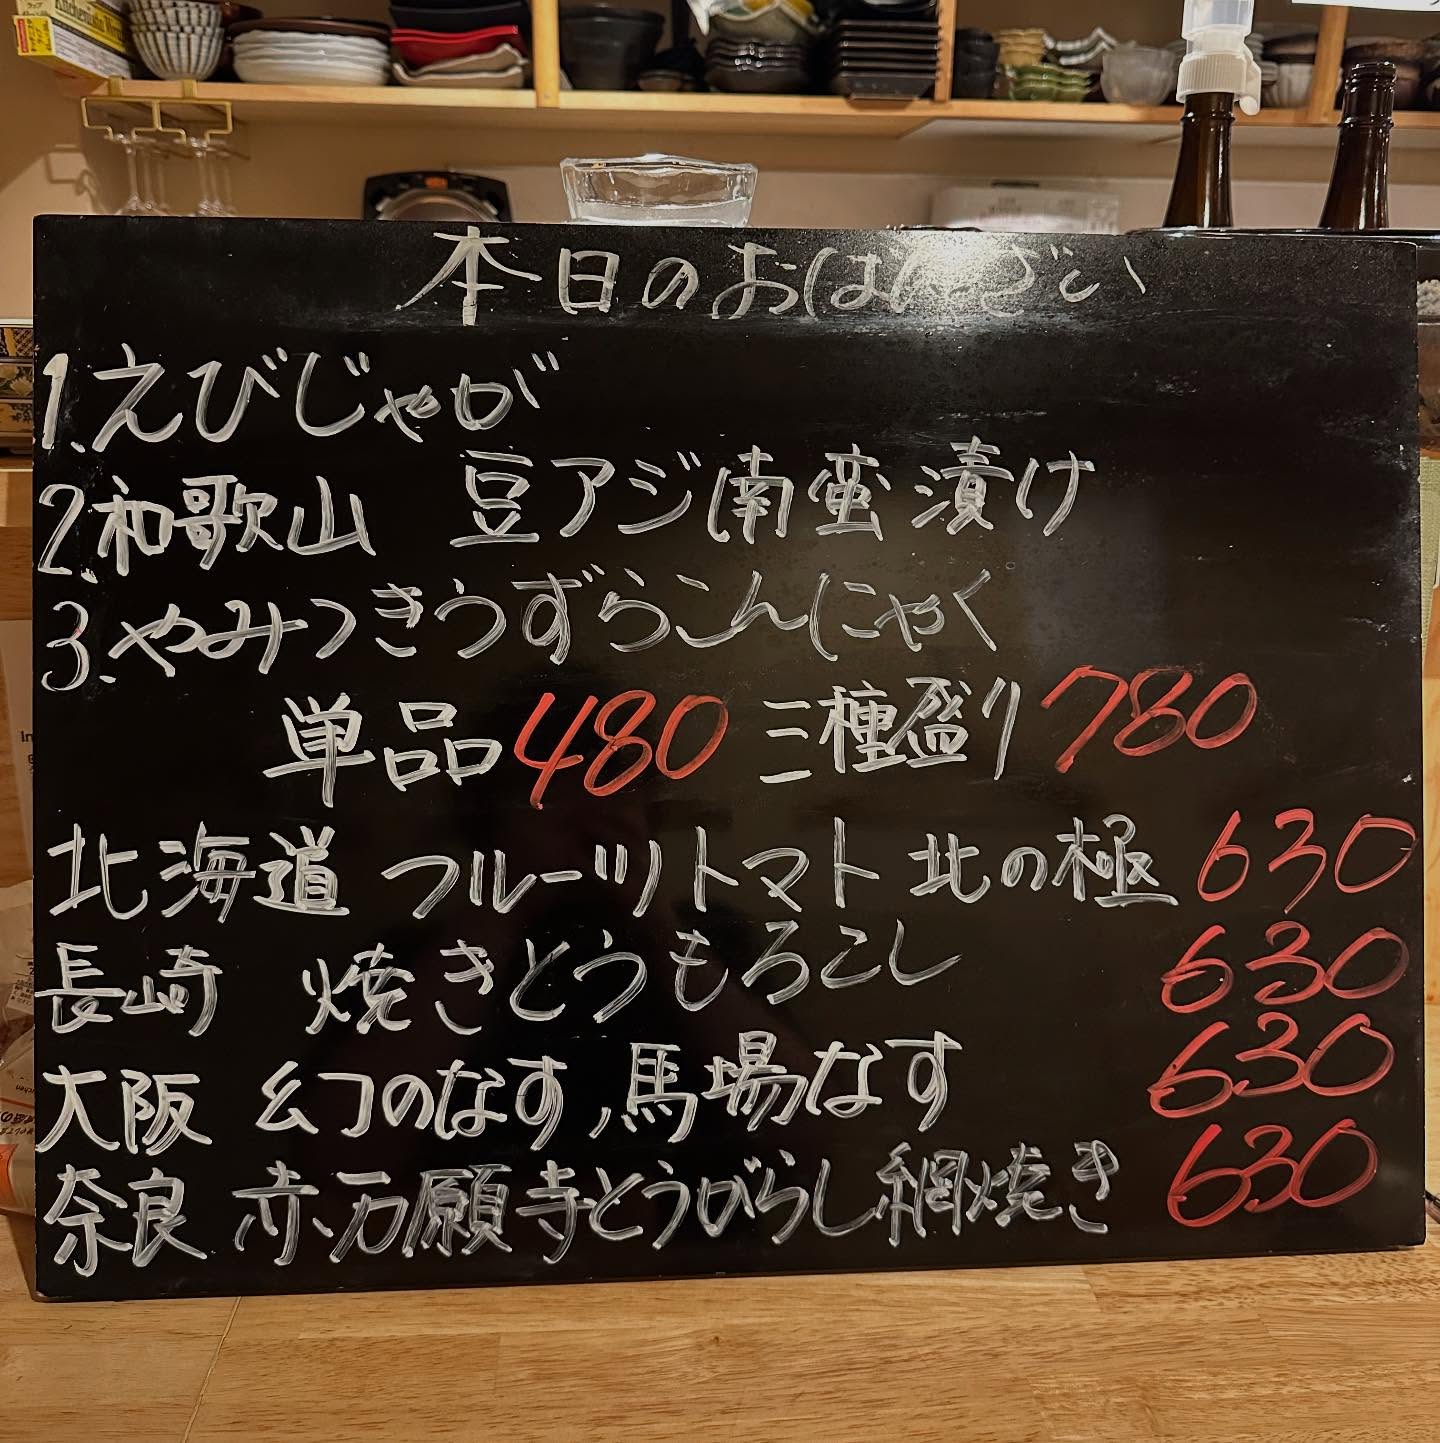 本日のおばんざい
1.えびじゃが
2.和歌山 豆アジ南蛮漬け
3.やみつきうずらこんにゃく
単品480 三種盛り780
北海道 フルーツトマト 北の極 630
長崎 焼きとうもろこし 630
大阪 幻のなす,馬場なす 630
奈良 赤万願寺とうがらし網焼き 630